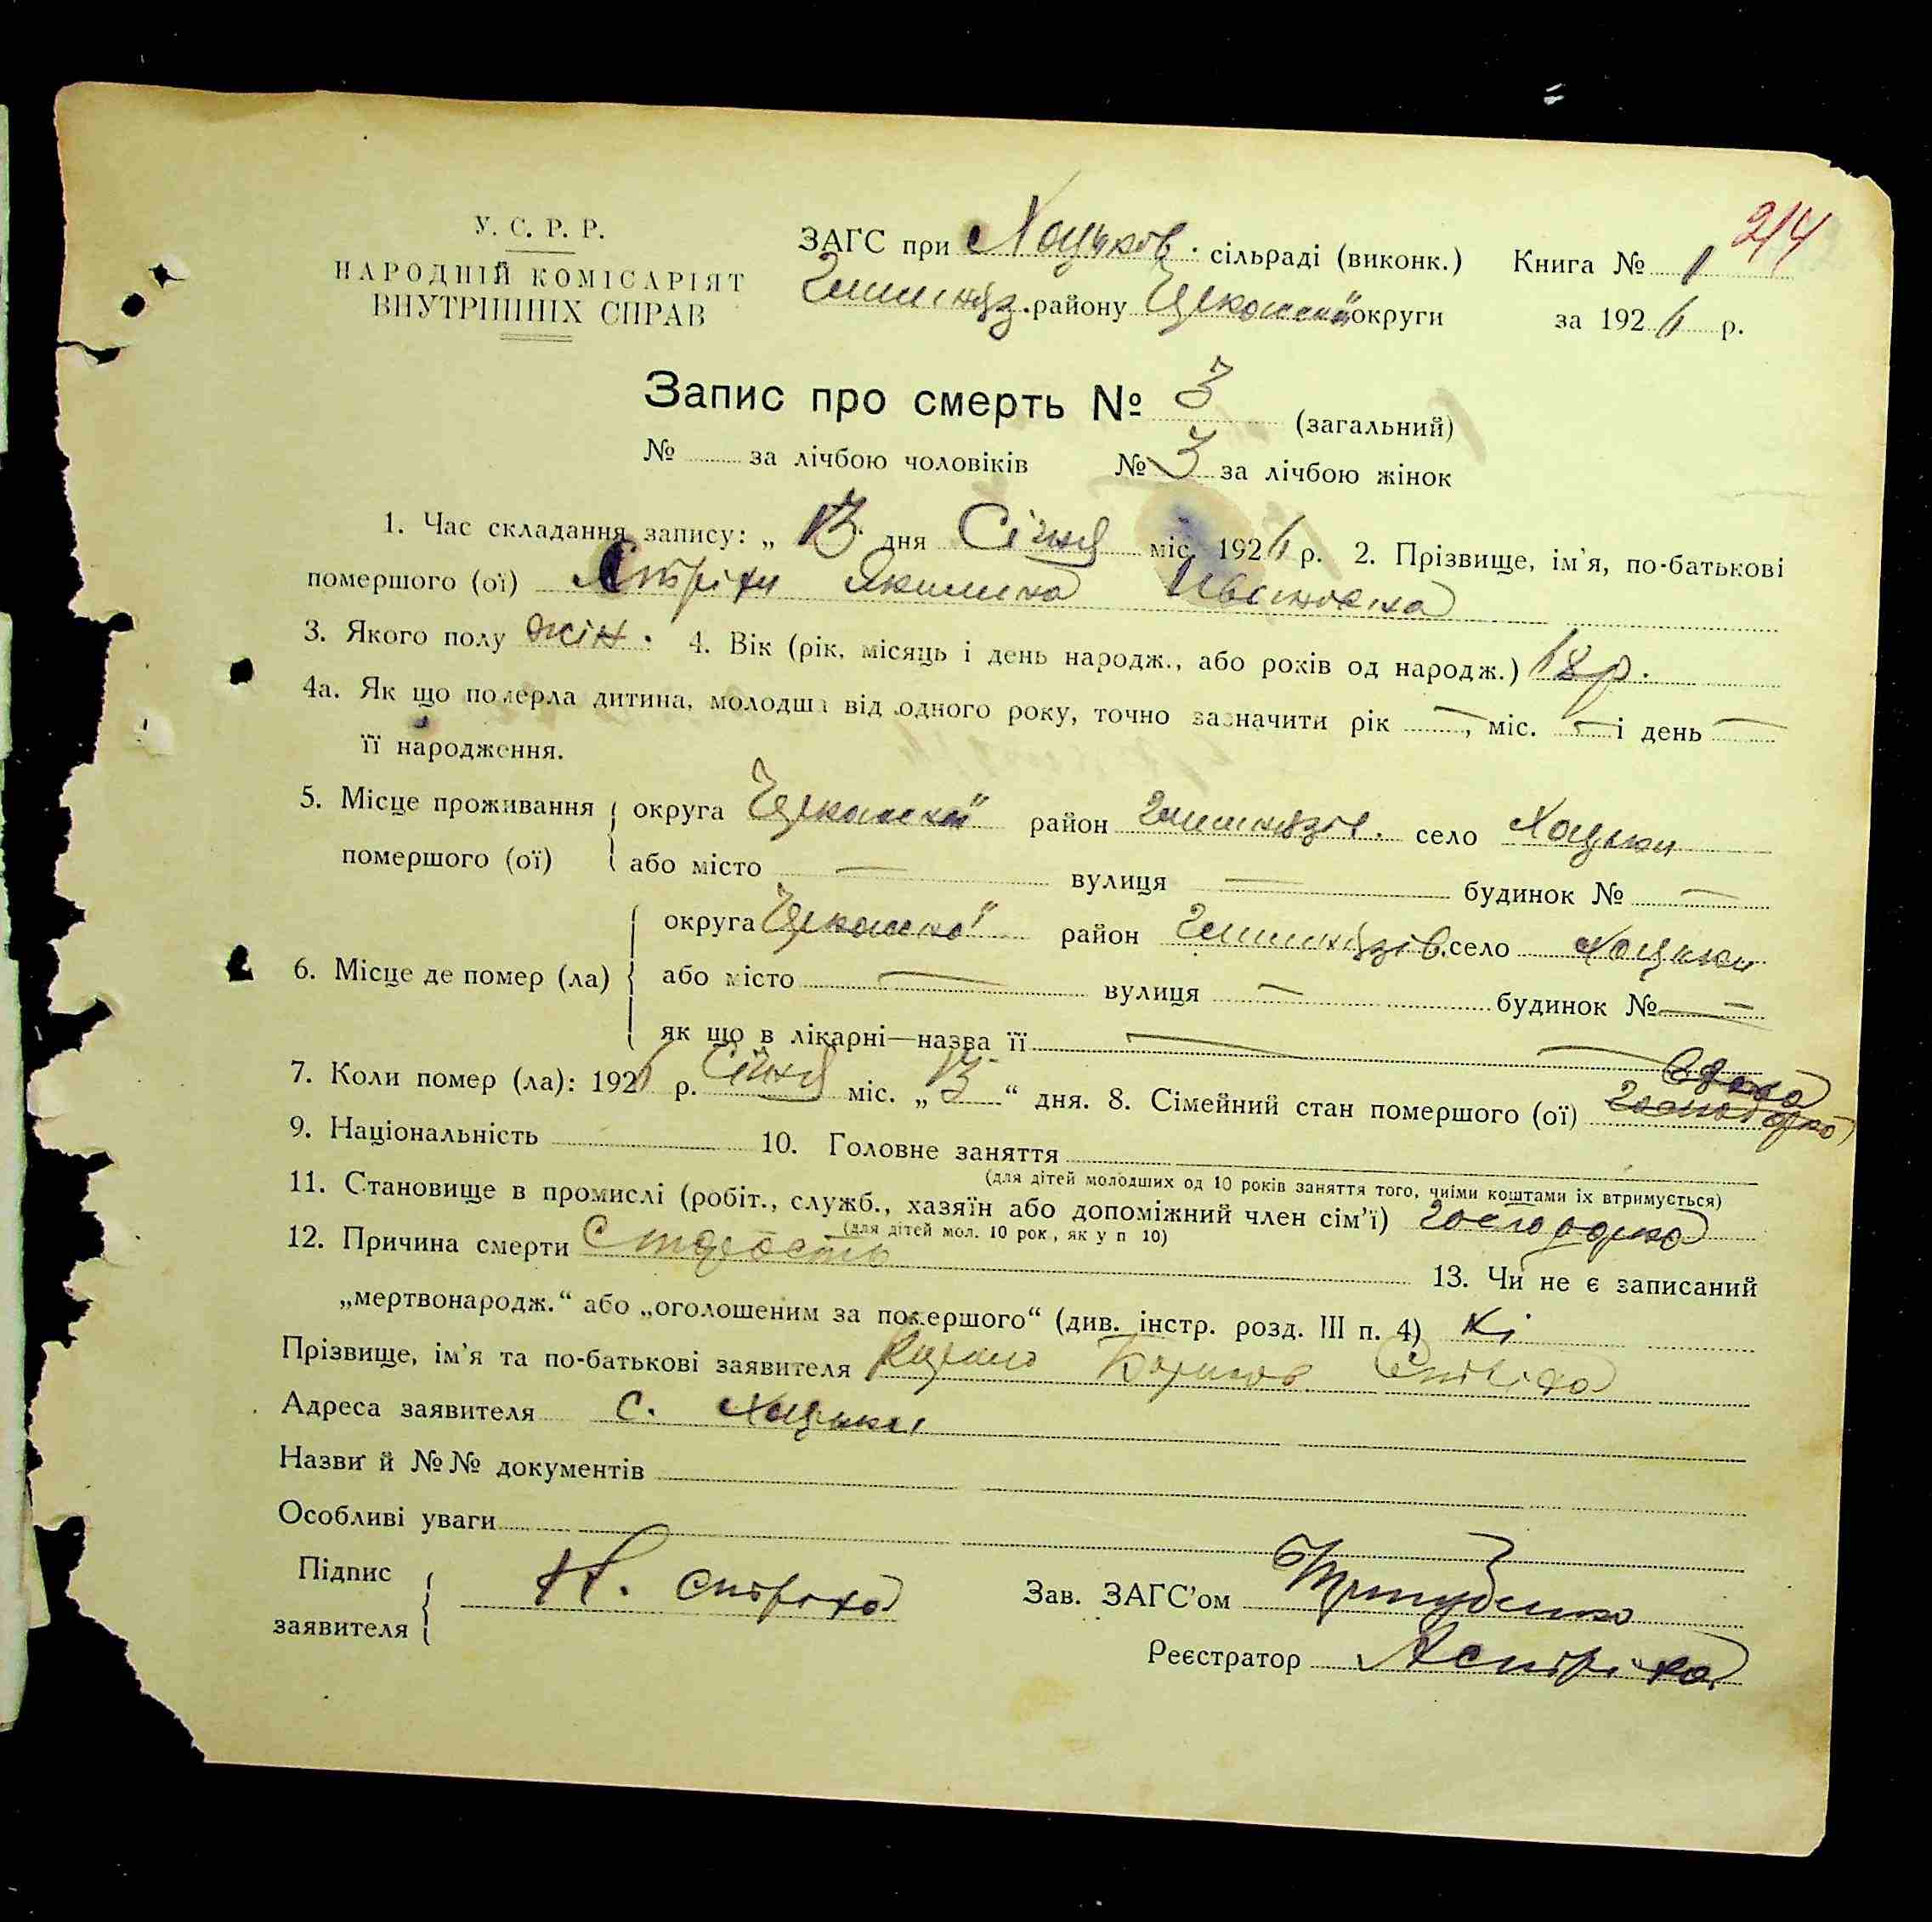 214
У. С. Р. Р.
НАРОДНІЙ КОМІСАРІЯТ
ВНУТРІШНІХ СПРАВ
ЗАГС при Хоцьков. сільраді (виконк.) Книга № 1
району Черкаської округи за 192 р.
Запис про смерть № 3 (загальний)
№ за лічбою чоловіків № 3 за лічбою жінок
1. Час складання запису: „ 13 дня Січня міс. 192 р. 2. Прізвище, ім'я, по-батькові
помершого (ої) Стріха Якилина Ивановна
3. Якого полу жін. 4. Вік (рік, місяць і день народж., або років од народж.) р.
4а. Як що померла дитина, молодша від одного року, точно зазначити рік —, міс. — і день —
її народження.
5. Місце проживання помершого (ої) округа Черкаської район село Хоцьки
або місто — вулиця — будинок № —
6. Місце де помер (ла) округа Черкаської район село Хоцьки
або місто — вулиця — будинок № —
як що в лікарні—назва її —
7. Коли помер (ла): 192 р. Січня міс. „ 13 “ дня. 8. Сімейний стан помершого (ої) Вдова
9. Національність 10. Головне заняття
(для дітей молодших од 10 років заняття того, чиїми коштами їх втримується)
11. Становище в промислі (робіт., служб., хазяїн або допоміжний член сім’ї)
(для дітей мол. 10 рок., як у п 10)
12. Причина смерти Старость 13. Чи не є записаний
„мертвонародж.“ або „оголошеним за помершого“ (див. інстр. розд. III п. 4) Ні
Прізвище, ім’я та по-батькові заявителя Стріха
Адреса заявителя с. Хоцьки
Назви й №№ документів
Особливі уваги
Підпис заявителя Стріха
Зав. ЗАГС’ом
Реєстратор Стріха